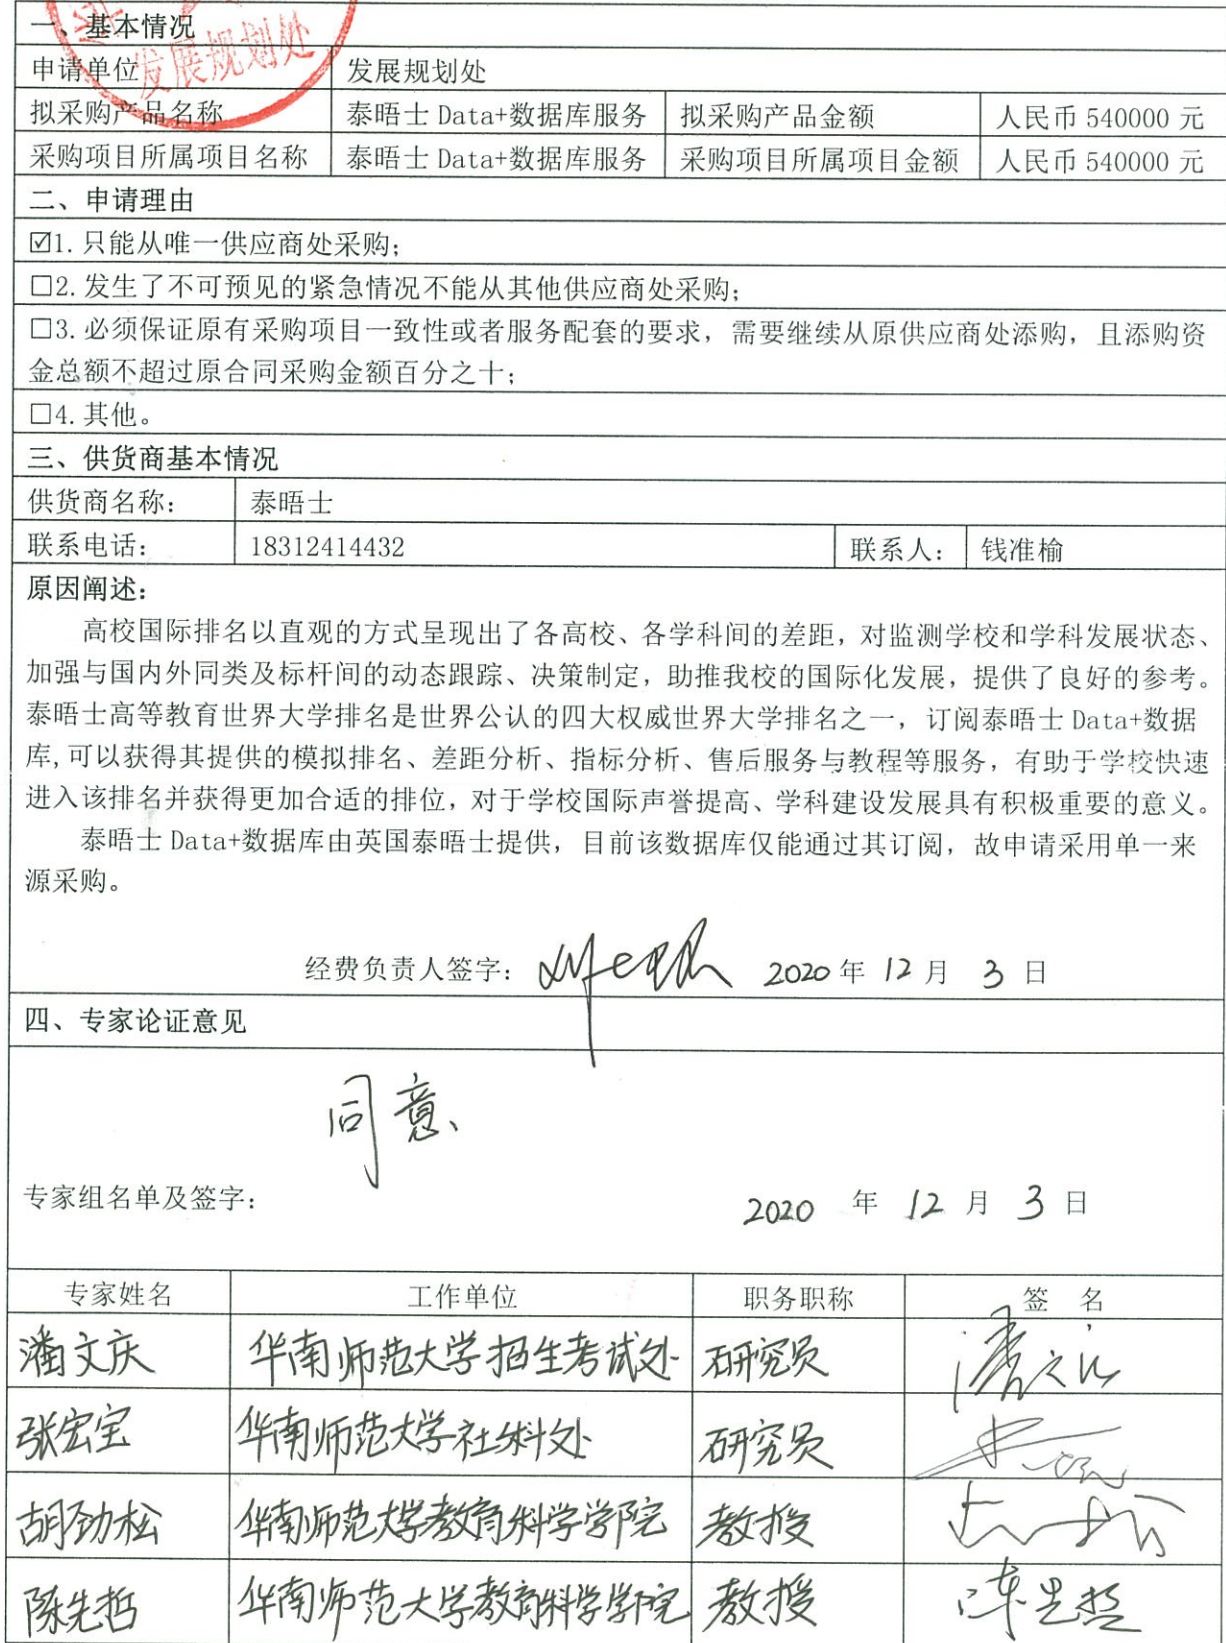 一、基本情况
发展规划处
申请单位 发展规划处
拟采购产品名称 泰晤士 Data+数据库服务 拟采购产品金额 人民币 540000 元
采购项目所属项目名称 泰晤士 Data+数据库服务 采购项目所属项目金额 人民币 540000 元
二、申请理由
☑1. 只能从唯一供应商处采购;
□2. 发生了不可预见的紧急情况不能从其他供应商处采购;
□3. 必须保证原有采购项目一致性或者服务配套的要求，需要继续从原供应商处添购，且添购资
金总额不超过原合同采购金额百分之十;
□4. 其他。
三、供货商基本情况
供货商名称: 泰晤士
联系电话: 18312414432 联系人: 钱准榆
原因阐述:
高校国际排名以直观的方式呈现出了各高校、各学科间的差距，对监测学校和学科发展状态、
加强与国内外同类及标杆间的动态跟踪、决策制定，助推我校的国际化发展，提供了良好的参考。
泰晤士高等教育世界大学排名是世界公认的四大权威世界大学排名之一，订阅泰晤士 Data+数据
库,可以获得其提供的模拟排名、差距分析、指标分析、售后服务与教程等服务，有助于学校快速
进入该排名并获得更加合适的排位，对于学校国际声誉提高、学科建设发展具有积极重要的意义。
泰晤士 Data+数据库由英国泰晤士提供，目前该数据库仅能通过其订阅，故申请采用单一来
源采购。
经费负责人签字: 2020 年 12 月 3 日
四、专家论证意见
同意、
专家组名单及签字: 2020 年 12 月 3 日
专家姓名 工作单位 职务职称 签 名
潘文庆 华南师范大学招生考试处 研究员
张宏宝 华南师范大学社科处 研究员
胡劲松 华南师范大学教育科学学院 教授
陈先哲 华南师范大学教育科学学院 教授 陈先哲